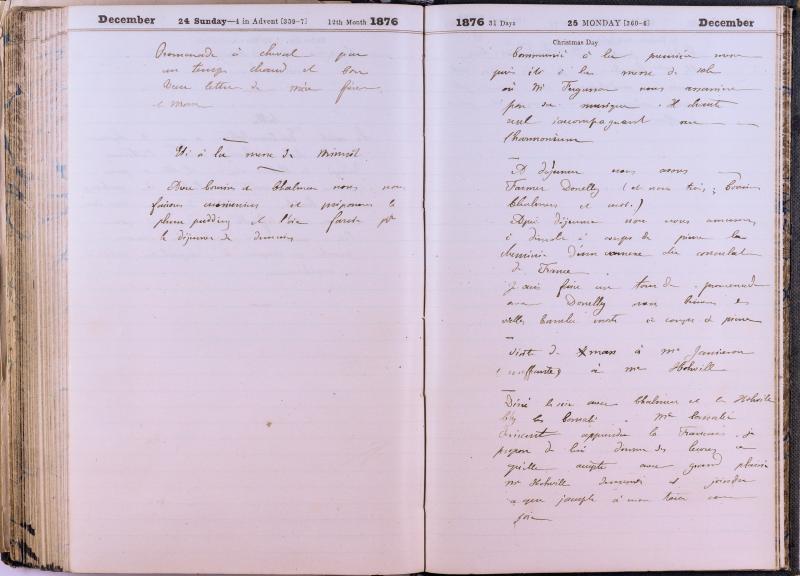 December 24 Sunday—4 in Advent [359-7] 12th Month 1876
Promenade à cheval par
un temps chaud et bon
lettre de mère
et
à la messe de minuit
cousin et Chalmers nous nous
faisons cuisinières et préparons le
plum pudding et l'oie farcie pr
le déjeuner de demain
1876 31 Days 25 MONDAY [360-6] December
Christmas Day
Communié à la première messe
puis à la messe de
où Mr Fergusson nous
par sa musique. Il chante
seul s'accompagnant sur
l'harmonium
A déjeuner nous avons
Farmer Donelly (et nous trois; Cousin
Chalmers et moi.)
Après déjeuner nous nous amusons
à à coups de pierre la
cheminée du consulat
de France
Je vais faire un tour de promenade
avec Donelly nous
à coups de pierre
visite de Xmas à Mme Jamieson
(souffrante) à Mme Holwill
Dîné le soir avec Chalmers et les Holwill
chez les . Mme
apprendre le Français. Je
propose de lui donner des leçons ce
qu'elle accepte avec grand plaisir
Mme Holwill demande à se joindre
ce que j'accepte à mon tour avec
joie